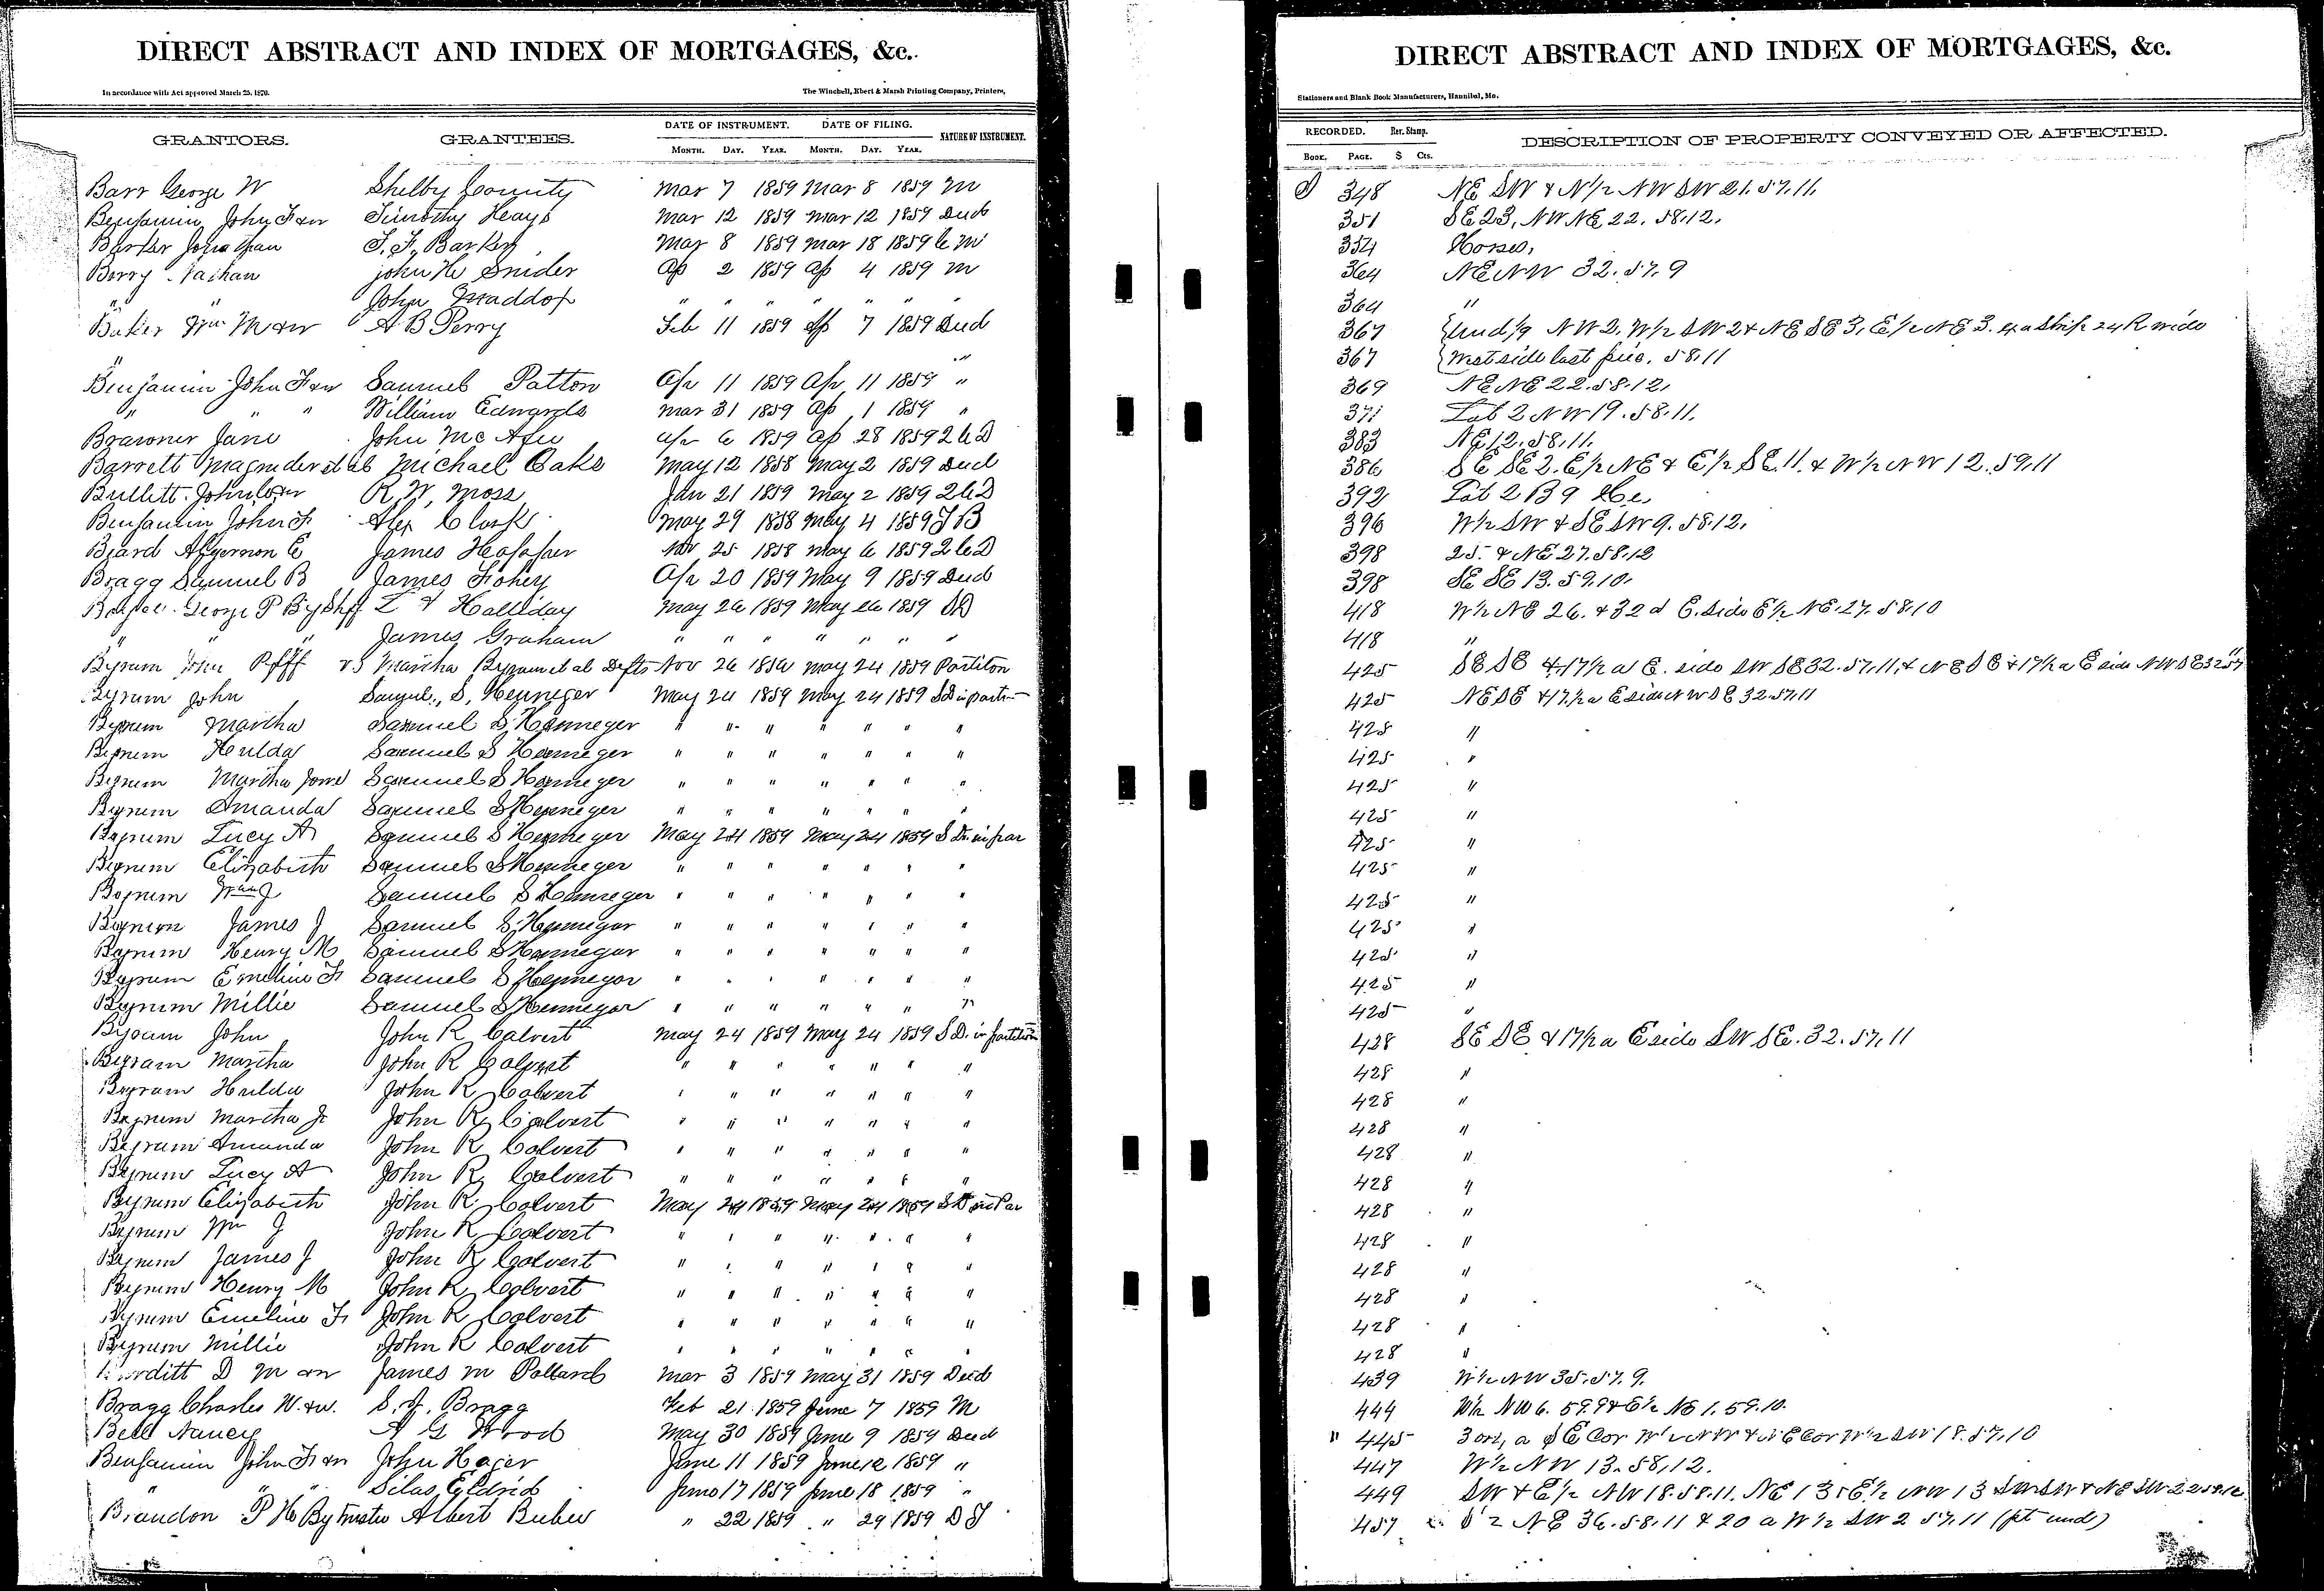 DIRECT ABSTRACT AND INDEX OF MORTGAGES, &c.
In accordance with Act approved March 25, 1870. The Winchell, Ebert & Marsh Printing Company, Printers,
GRANTORS. GRANTEES. DATE OF INSTRUMENT. DATE OF FILING. NATURE OF INSTRUMENT.
MONTH. DAY. YEAR. MONTH. DAY. YEAR.
Barr George W Shelby County Mar 7 1859 Mar 8 1859 M
Benjamin John F &w Timothy Heays Mar 12 1859 Mar 12 1859 Deed
Barker Jonathan Barker Mar 8 1859 Mar 18 1859 M
Berry Nathan John Snider Ap 2 1859 Ap 4 1859 M
" John Maddox " " " " " "
Baker Wm M &w A B Perry Feb 11 1859 Ap 7 1859 Deed
" "
Benjamin John F &w Samuel Patton Apr 11 1859 Apr 11 1859 "
" " " William Edwards Mar 31 1859 Ap 1 1859 "
Brawner Jane John McAfee Apr 6 1859 Ap 28 1859 2 C D
Barrett Magruder et al Michael Cake May 12 1858 May 2 1859 Deed
Bullitt John &w R. W. Moss Jan 21 1859 May 2 1859 2 C D
Benjamin John F Alex Clark May 29 1858 May 4 1859 T B
Algernon E James Nov 25 1858 May 6 1859 2 C D
Bragg Samuel B James Fohey Apr 20 1859 May 9 1859 Deed
George P By Shff Halliday May 26 1859 May 26 1859 SD
" " " James Graham " " " " " " "
Byrum John Plff vs Martha Byrum et al Defts Nov 26 May 24 1859 Partiton
Byrum John Samuel S. Henneger May 24 1859 May 24 1859 SD in part
Byrum Martha Samuel S Henneger " " " " " " "
Byrum Hulda Samuel S Henneger " " " " " " "
Byrum Martha Jane Samuel S Henneger " " " " " " "
Byrum Amanda Samuel S Henneger " " " " " " "
Byrum Lucy A Samuel S Henneger May 24 1859 May 24 1859 S D. in par
Byrum Elizabeth Samuel S Henneger " " " " " " "
Byrum Wm J Samuel S Henneger " " " " " " "
Byrum James J Samuel S. Henneger " " " " " " "
Byrum Henry M Samuel S Henneger " " " " " " "
Byrum Emeline F Samuel S Henneger " " " " " " "
Byrum Millie Samuel S Henneger " " " " " " "
Byrum John John R Calvert May 24 1859 May 24 1859 S D. in partition
Byrum Martha John R Calvert " " " " " " "
Byrum Hulda John R Calvert " " " " " " "
Byrum Martha J John R Calvert " " " " " " "
Byrum Amanda John R Calvert " " " " " " "
Byrum Lucy A John R Calvert " " " " " " "
Byrum Elizabeth John R Calvert May 24 1859 May 24 1859 S D in Par
Byrum Wm J John R Calvert " " " " " " "
Byrum James J John R Calvert " " " " " " "
Byrum Henry M John R Calvert " " " " " " "
Byrum Emeline F John R Calvert " " " " " " "
Byrum Millie John R Calvert " " " " " " "
D M James M Pollard Mar 3 1859 May 31 1859 Deed
Bragg Charles W. &w. Bragg Feb 21 1859 June 7 1859 M
Bell Nancy A G Wood May 30 1859 June 9 1859 Deed
Benjamin John F &w John Hager June 11 1859 June 12 1859 "
" " Silas Eldrid June 17 1859 June 18 1859 "
Brandon P H By trustee Albert " 22 1859 " 29 1859 D T
DIRECT ABSTRACT AND INDEX OF MORTGAGES, &c.
Stationers and Blank Book Manufacturers, Hannibal, Mo.
RECORDED. Rev. Stamp. DESCRIPTION OF PROPERTY CONVEYED OR AFFECTED.
BOOK. PAGE. $ Cts.
348 NE SW & N/2 NW SW 21. 57. 11.
351 SE 23, NW NE 22. 58. 12.
354 Horses,
364 NE NW 32. 57. 9
364 "
367 Und 1/9 NW 2. W/2 SW 2 & NE SE 3, E/2 NE 3. ex a Strip 24 R wide
367 West side last piece. 58. 11
369 NE NE 22. 58. 12.
371 Lot 2 NW 19. 58. 11.
383 NE 12. 58. 11.
386 SE SE 2. E/2 NE & E/2 SE. 11. & W/2 NW 12. 59. 11
392 Lot 2 B 9
396 W/2 SW & SE SW 9. 58. 12.
398 25. & NE 27. 58. 12
398 SE SE 13. 59. 10.
418 W/2 NE 26. & 32 a E. side E/2 NE. 27. 58. 10
418 "
425 SE SE & 17/2 a E. side SW SE 32. 57. 11. & NE SE & 17/2 a E side NW SE 32 57 11
425 NE SE & 17/2 a E side NW SE 32. 57. 11
425 "
425 "
425 "
425 "
425 "
425 "
425 "
425 "
425 "
425 "
425 "
428 SE SE & 17/2 a E side SW SE. 32. 57. 11
428 "
428 "
428 "
428 "
428 "
428 "
428 "
428 "
428 "
428 "
428 "
439 W/2 NW 35. 57. 9.
444 W/2 NW 6. 59. 9 & E/2 NE 1. 59. 10.
" 445 3 a SE Cor W/2 NW & NE Cor W/2 SW 18. 57. 10
447 W/2 NW 13. 58. 12.
449 SW & E/2 NW 18. 58. 11. NE 13 & E/2 NW 13 SW SW & NE SW
457 NE 36. 58. 11 & 20 a W/2 SW 2 57. 11 (pt und)